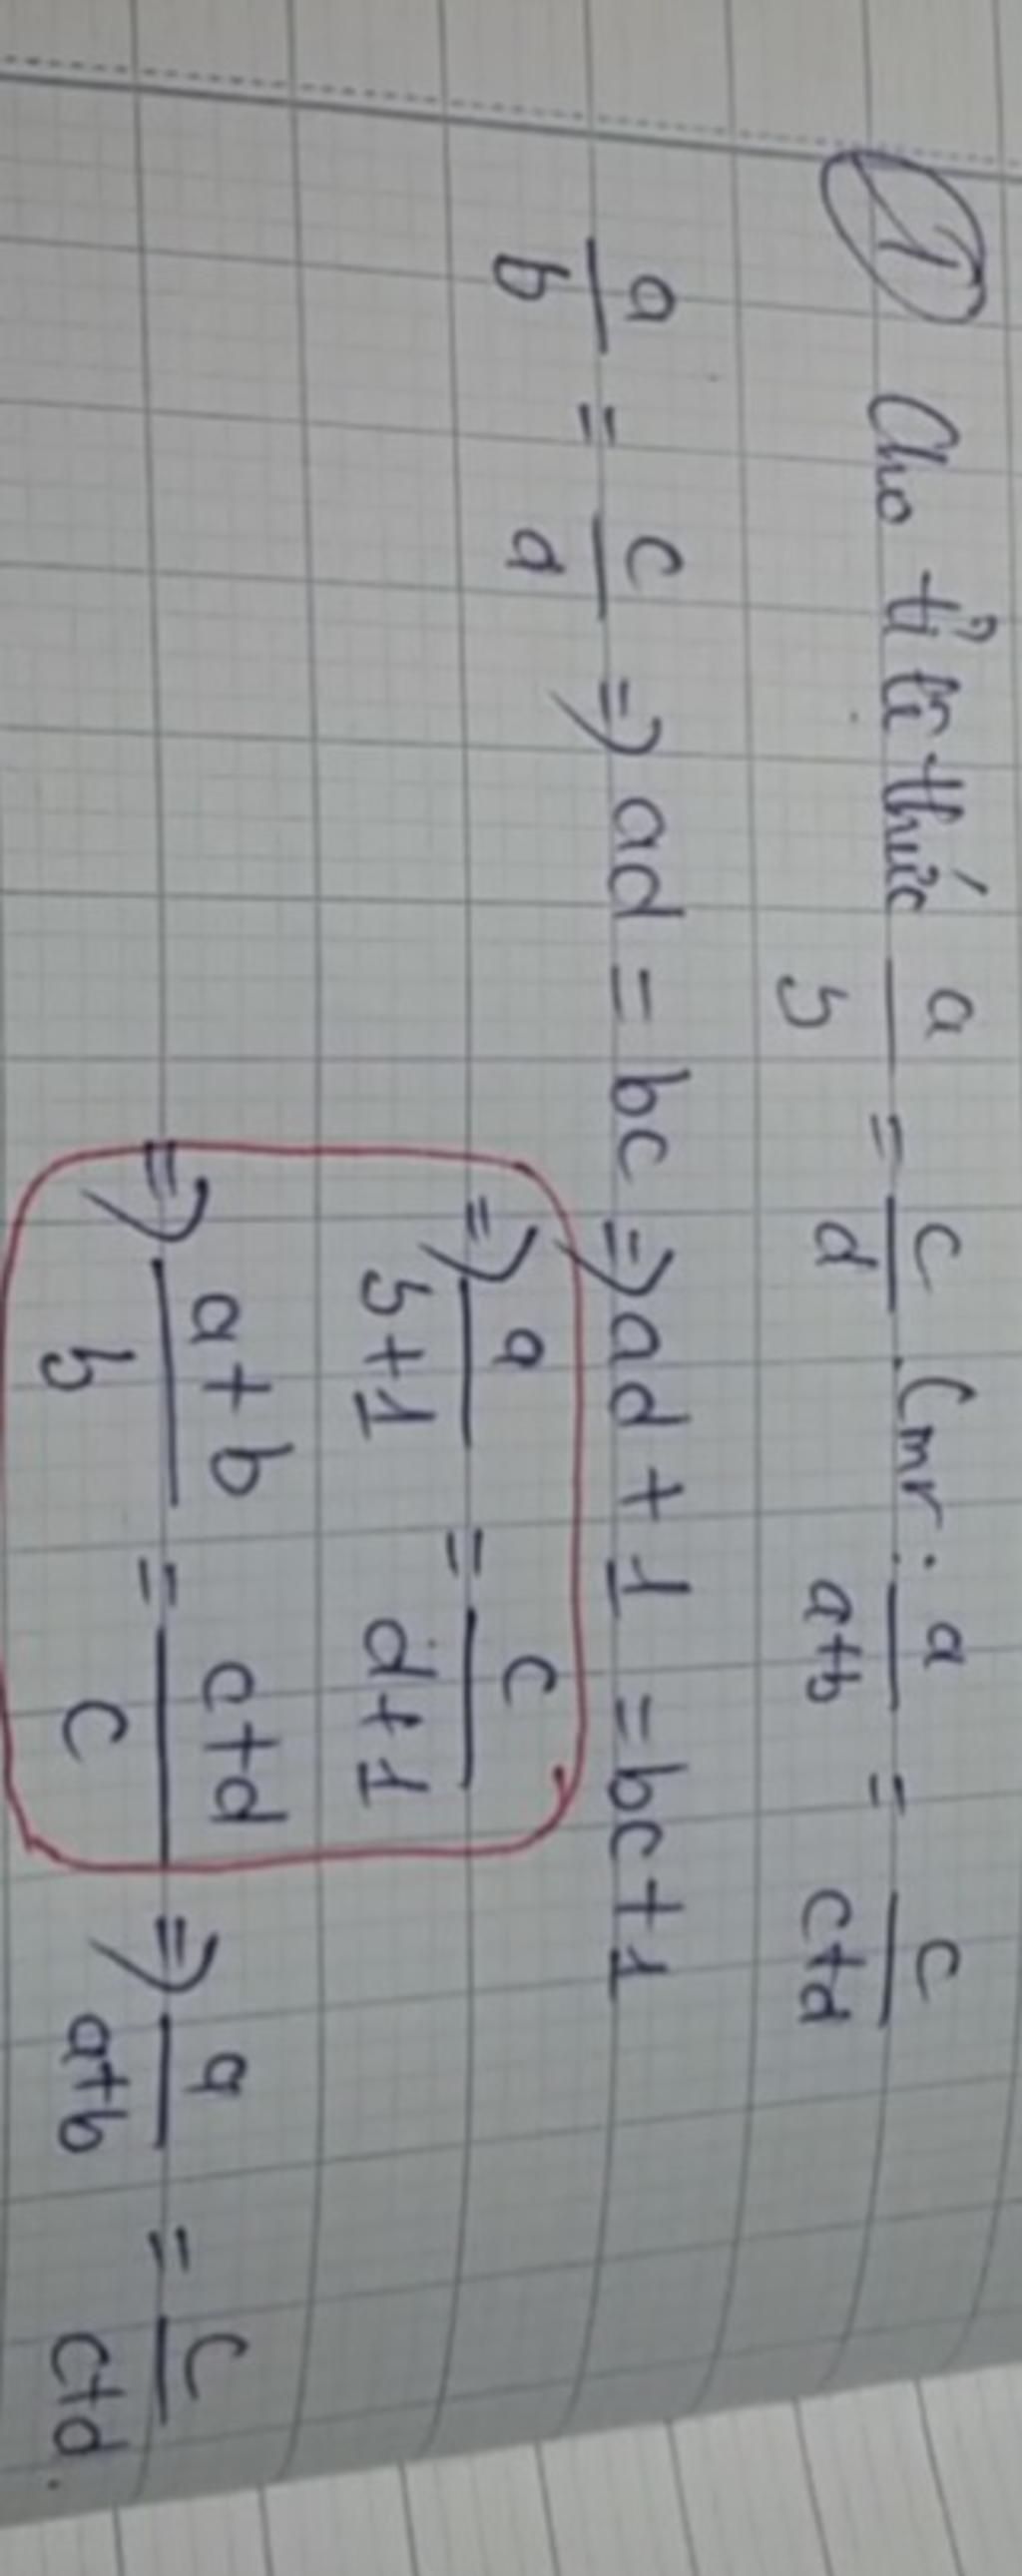 ① Cho tỉ lệ thức a/b = c/d. Cmr: a/a+b = c/c+d
a/b = c/d => ad = bc => ad + 1 = bc + 1
=> a/b+1 = c/d+1
=> a+b/b = c+d/c => a/a+b = c/c+d.